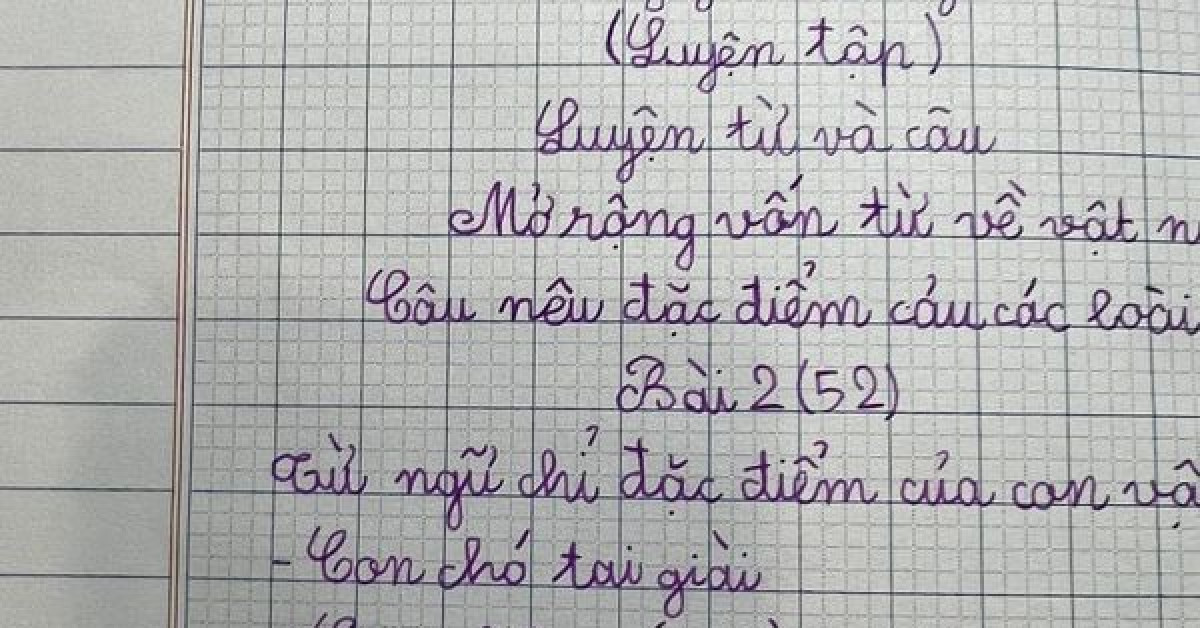 (Luyện tập)
Luyện từ và câu
Mở rộng vốn từ về vật n
Câu nêu đặc điểm cảu các loài
Bài 2 (52)
Từ ngữ chỉ đặc điểm của con vậ
- Con chó tai giài